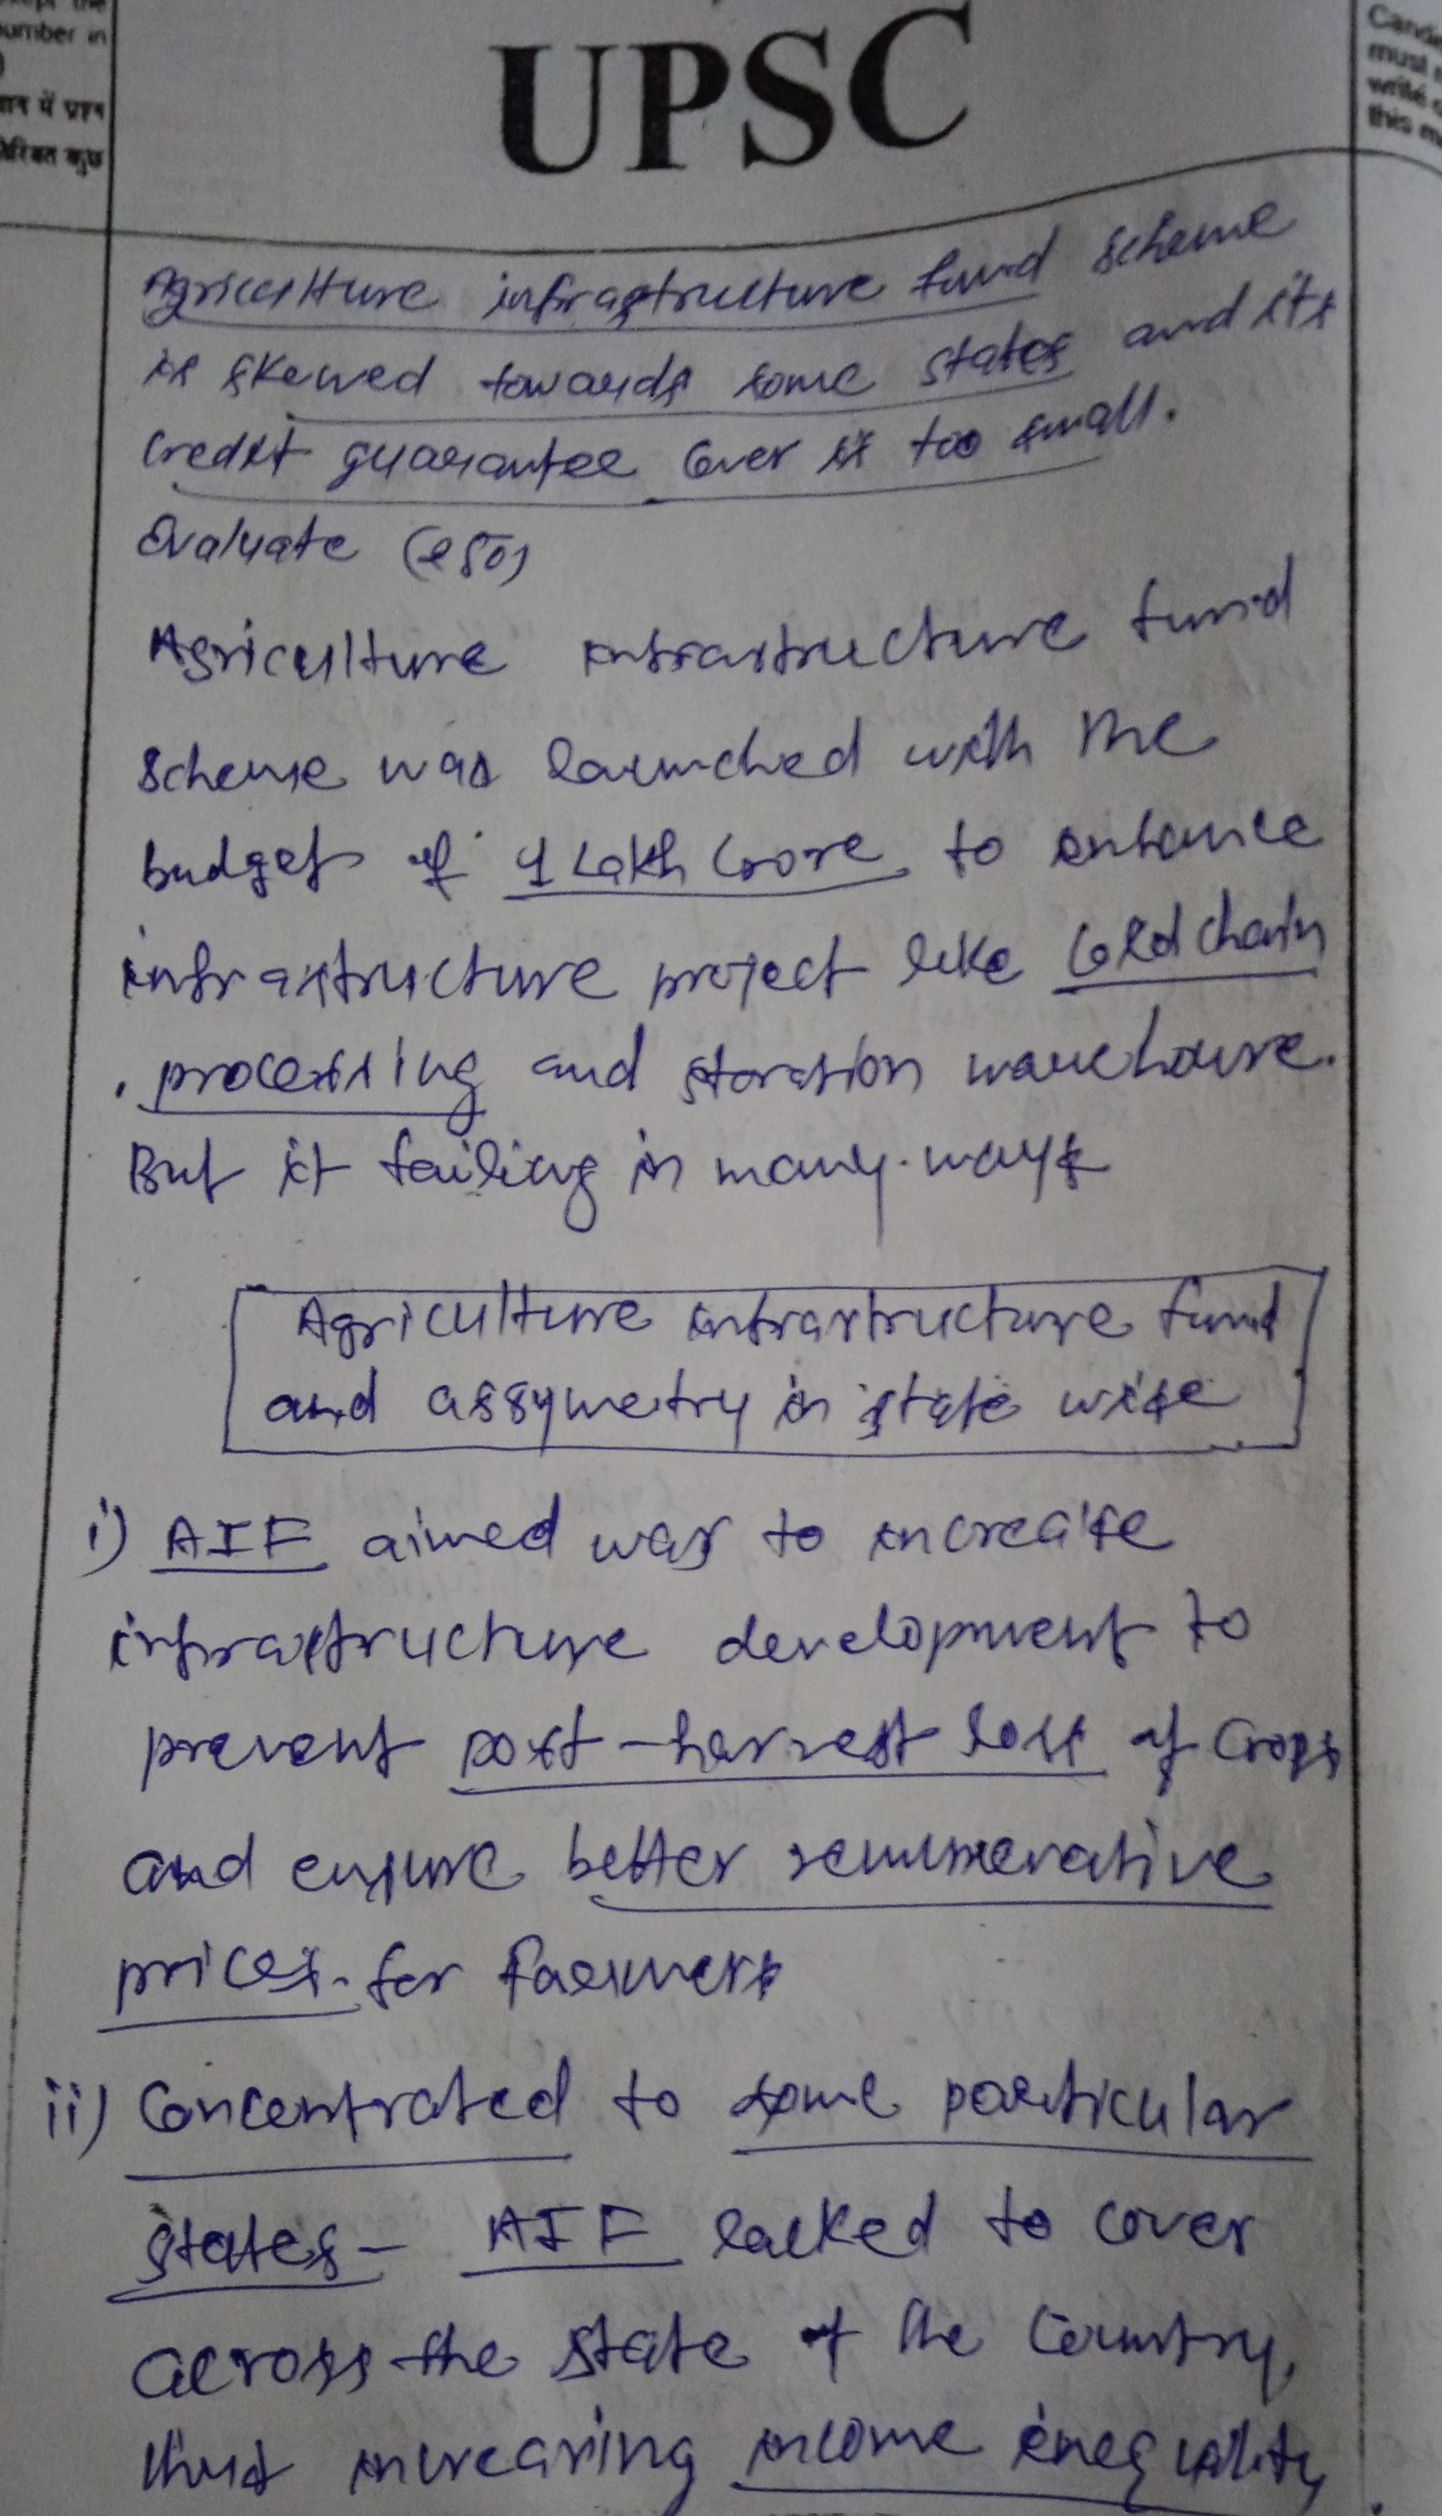 number in
UPSC
must
this
Agriculture infrastructure fund scheme
is skewed towards some states and its
credit guarantee cover is too small.
Evaluate (250)
Agriculture infrastructure fund
scheme was launched with the
budget of 1 Lakh Crore to enhance
infrastructure project like Cold chain
, processing and storation warehouse.
But it failing in many ways
Agriculture infrastructure fund
and assymetry in state wise
i) AIF aimed was to increase
infrastructure development to
prevent post-harvest loss of crops
and ensure better remunerative
prices for farmers
ii) Concentrated to some particular
states - AIF lacked to cover
across the state of the Country,
thus increasing income inequality